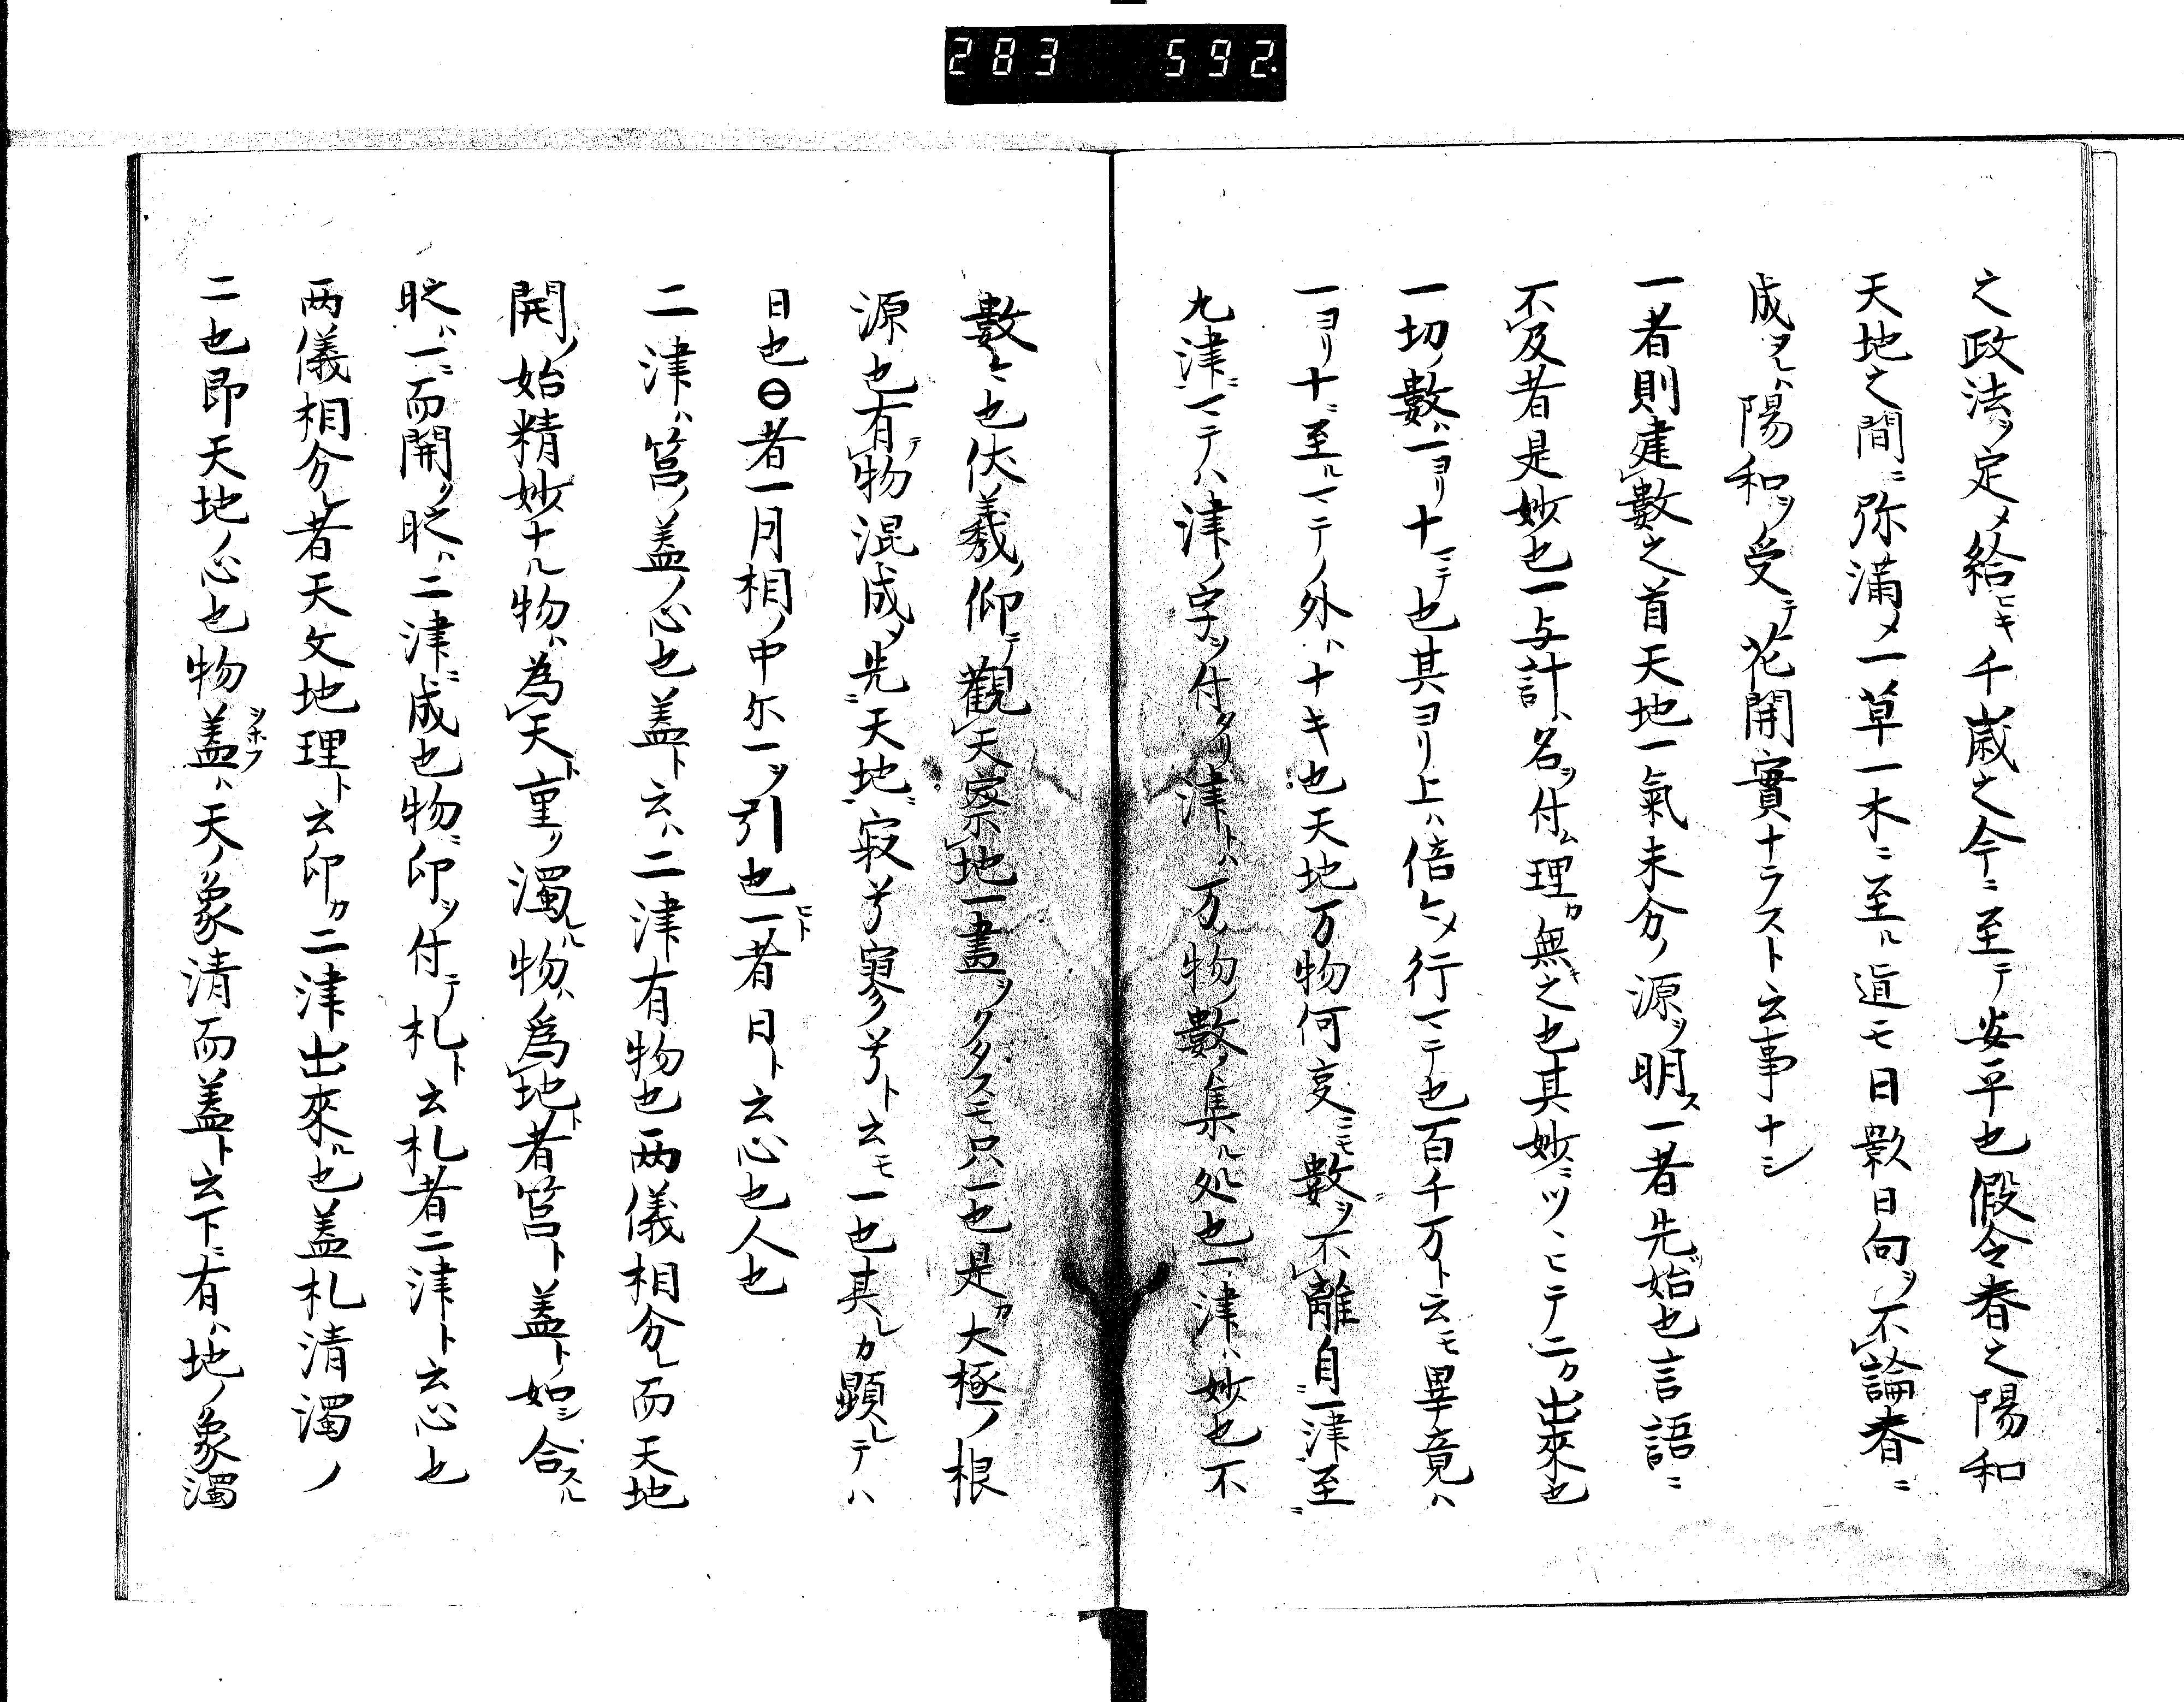 283 592.
之政法ヲ定メ給ヒキ千歳之今ニ至テ安平也假令春之陽和
天地之間ニ弥満メ一草一木ニ至ル迠モ日影日向ヲ不論春ニ
成ヌレハ陽和ヲ受テ花開實ナラスト云事ナシ
一者則建數之首天地一氣未分ノ源ヲ明ス一者先始也言語ニ
不及者是妙也一与計ハ名ヲ付ム理カ無キ之也其妙ニツヽヒテ二カ出來也
一切ノ數ハ一ヨリ十マテ也其ヨリ上ハ倍々メ行マテ也百千万ト云モ畢竟ハ
一ヨリ十ニ至ルマテノ外ハナキ也天地万物何支ニモ數ヲ不離自一津至
九津ニマテハ津ノ字ヲ付タリ津トハ万物ノ數ノ集ル処也一津ハ妙也不
數々也伏羲ノ仰テ觀天察地一畫ヲクタスモ只一也是カ大極ノ根
源也有テ物混成ノ先ニ天地ニ寂兮寥兮ト云モ一也其レカ顯レテハ
日也⊖者一月相ノ中尓一ヲ引也一者日ト云心也人也
二津ハ筥ノ蓋ノ心也蓋ト云ハ二津有物也两儀相分レ而天地
開ノ始精妙ナル物ハ為天ト重ク濁レル物ハ爲地ト者筥ト蓋トノ如シ合スル
眂ハ一ニ而開ク眂ハ二津ニ成也物ニ印ヲ付テ札ト云札者二津ト云心也
两儀相分レ者天文地理ト云印カ二津出來ル也蓋札清濁ノ
二也即天地ノ心也物蓋シホフハ天ノ象清而蓋ト云下ニ有ハ地ノ象濁